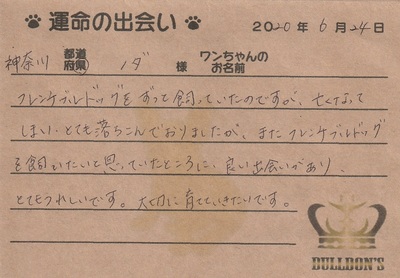 運命の出会い 2020年6月24日
神奈川 都道府県 様 ワンちゃんのお名前
フレンチブルドッグをずっと飼っていたのですが、亡くなって
しまい、とても落ちこんでおりましたが、またフレンチブルドッグ
を飼いたいと思っていたところに、良い出会いがあり、
とてもうれしいです。大切に育てていきたいです。
BULLDON'S